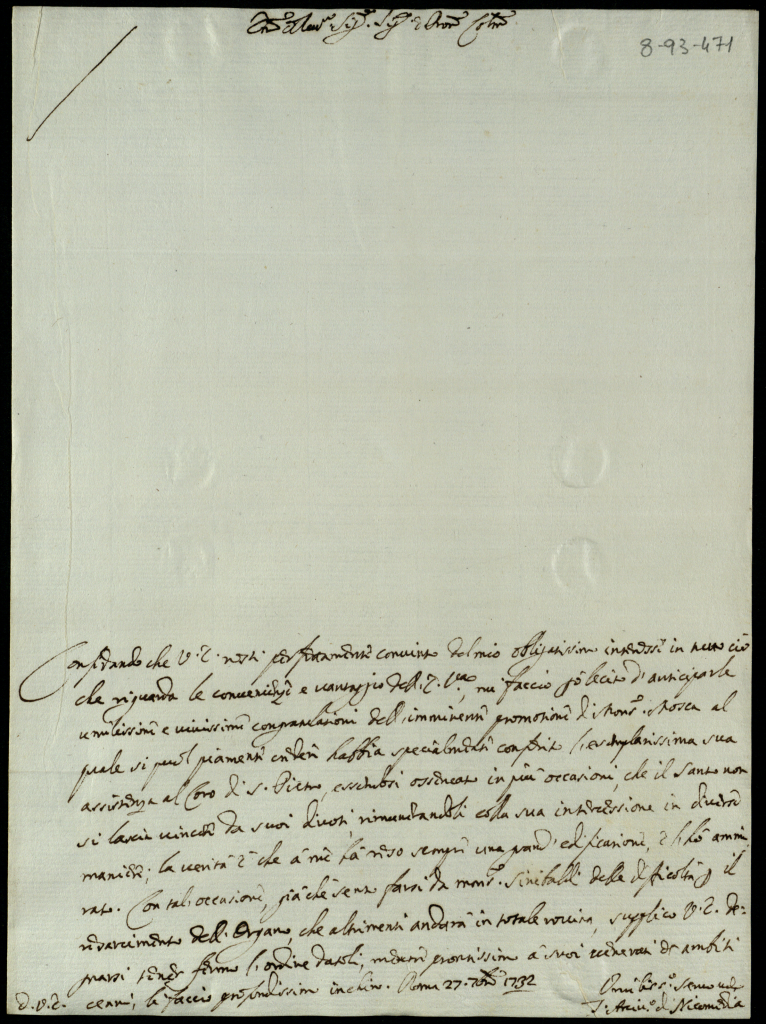 Em.o e Rev.o Sig.r Sig.r e Pron. Col.mo
8-93-471
Confidando che V. E. resti perfettamente convinta del mio obligatissimo interesse in tutto ciò
che riguarda le convenienze e vantaggio dell' E. V.ra, mi faccio lecito d' anticiparle
umilissime e vivissime congratulazioni dell' imminente promozione di Mons.r Mosca al
quale si può piamente credere habbia specialmente conferito l' esemplarissima sua
assistenza al Coro di S. Pietro, essendosi osservato in più occasioni, che il Santo non
si lascia vincere da suoi divoti, rimunerandoli colla sua intercessione in diverse
maniere; la verità è che à me hà reso sempre una grand' edificazione, e l' hò ammi
rato. Con tal' occasione, già che sento farsi da mons.r Sinibaldi delle difficoltà p il
risarcimento dell' Organo, che altrimenti andarà in totale rovina, supplico V. E. de=
gnarsi tener fermo l' ordine datoli, mentre prontissimo à suoi venerati et ambiti
cenni, le faccio profondissimo inchino. Roma 27. 7bre 1732
D. V. E.
Umiliss.o servo
Arciv.o di Nicomedia